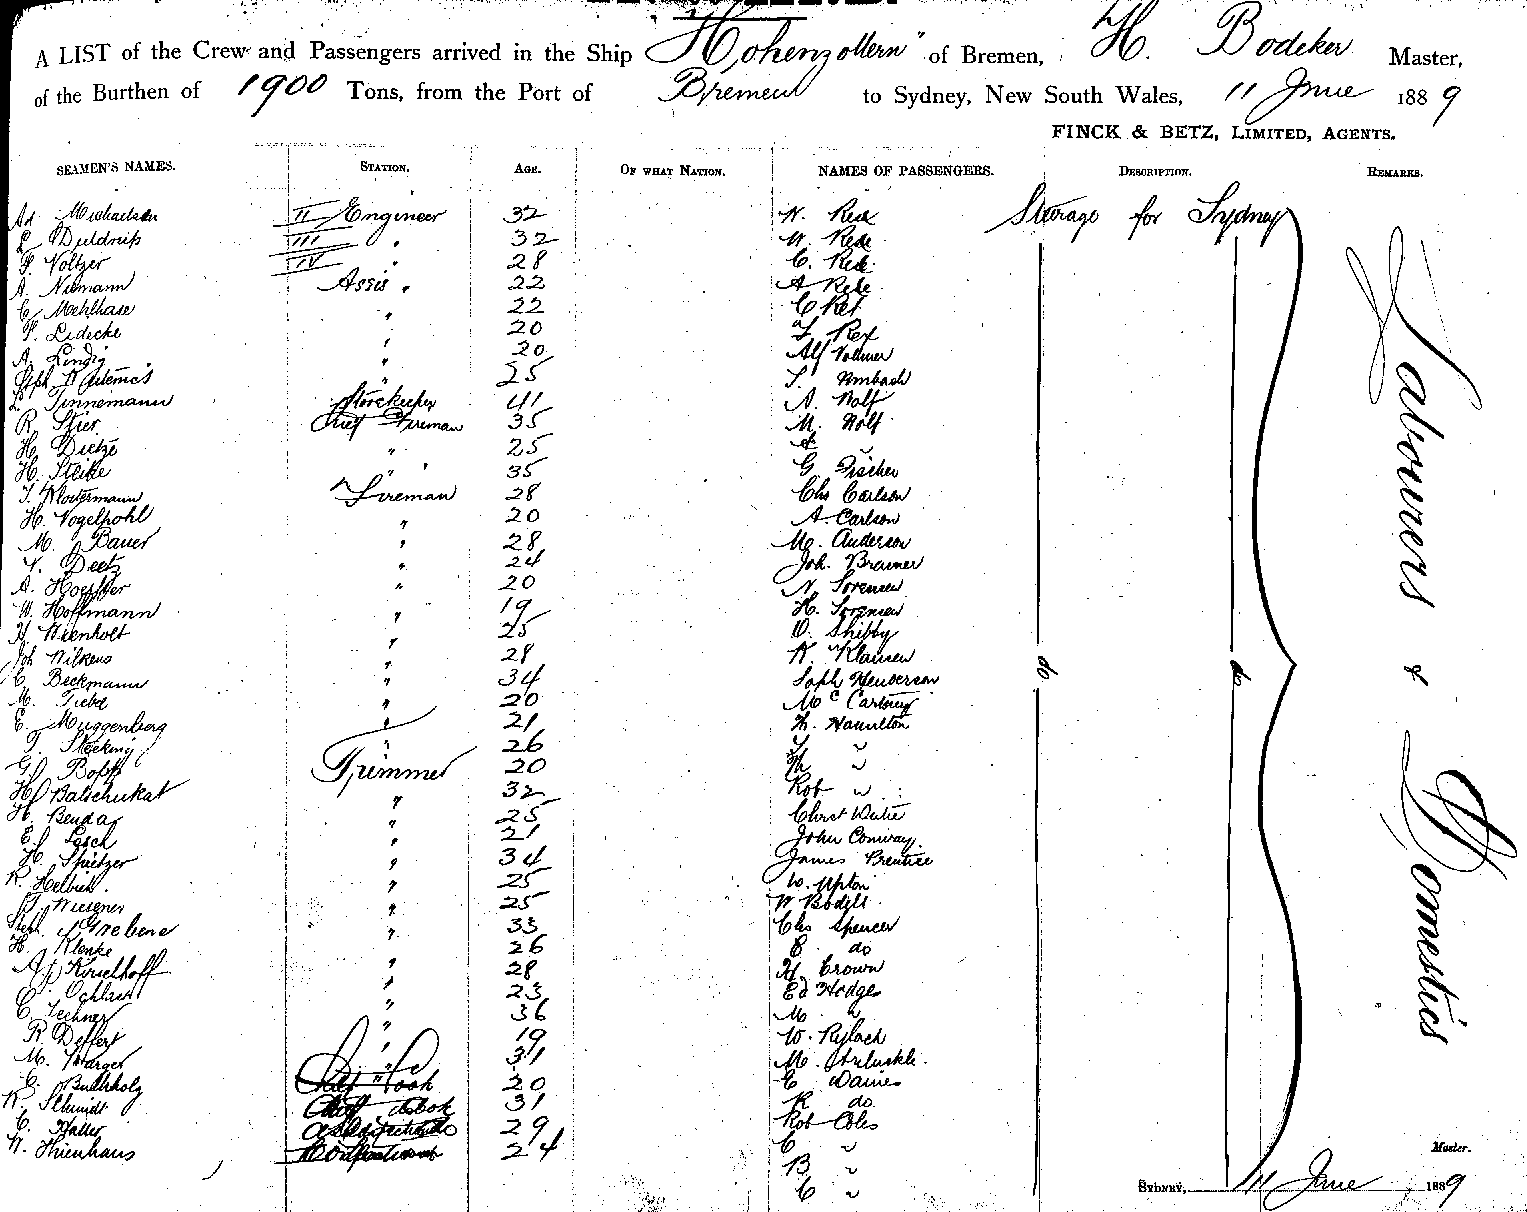 A LIST of the Crew and Passengers arrived in the Ship "Hohenzollern" of Bremen, H. Bodeker Master,
of the Burthen of 1900 Tons, from the Port of Bremen to Sydney, New South Wales, 11 June 1889
FINCK & BETZ, LIMITED, AGENTS.
SEAMEN'S NAMES. STATION. AGE. OF WHAT NATION. NAMES OF PASSENGERS. DESCRIPTION. REMARKS.
Michaelsen II Engineer 32 Sturage for Sydney
III " 32
F. Voltzer IV " 28
A. Niemann Assis " 22
C. Mehlhase " 22
F. Lidecke " 20 Rex
A. Lindig " 20 Alf Vollmer
" 25 Ambach
Tinnemann Storekeeper 41 A. Wolf
R. Stier Chief Fireman 35 M. Wolf
H. Dietze " 25
H. Steike " " 35 G Fischer
Klostermann Fireman 28 Chs Carlson
H. Vogelpohl " 20 A. Carlson
M. Bauer " 28 M. Anderson
Deetz " 24 Joh. Brauner
A. Hoepfner " 20 N. Sorensen
W. Hoffmann " 19 H. Sorensen
H. Wienholt " 25 Shibby
Joh Wilkens " 28 K. Klausen
C. Beckmann " 34 Soph Henderson do do
M. " 20 Mc Cartney
E. Muggenberg " 21 Th. Hamilton
" 26 "
Bopp Trimmer 20 Th "
H. Balschukat " 32 Rob "
H. Bendar " 25 Christ
E. Lesch " 21 John Conway.
H. Spietzer " 34 James Prentice
R. Helbich. " 25 W. Upton
Wiesner " 25 W Bodill
Steph. Grebene " 33 Chs Spencer
H. Klenke " 26 E. do
A. Kirschhoff " 28 H. Brown
" 23 Ed Hodges
C. Lechner " 36 M. "
R. Deffert " 19 W. Rylach
M. " 31 M.
C. Buchholz " 20 E Daines
R. Schmidt 31 R do
C. Haller 29 Rob Coles
W. Thienhaus 24 C "
B "
C "
Labourers & Domestics
Master.
SYDNEY, 11 June 1889